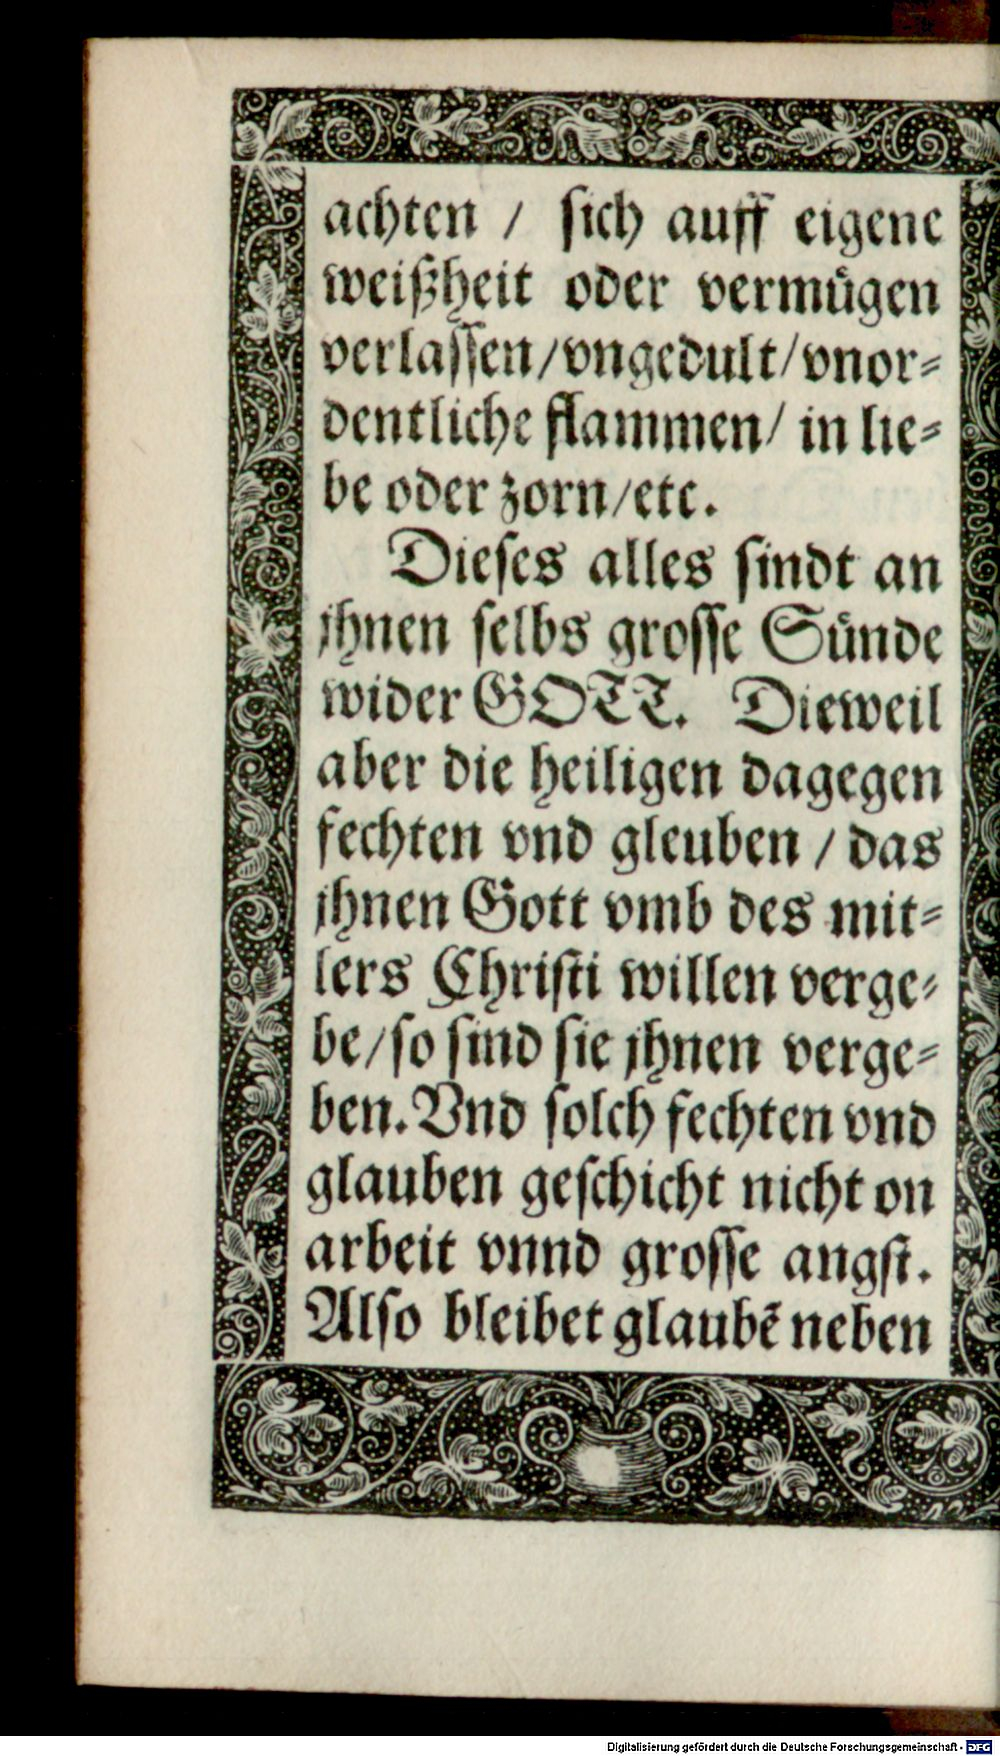 achten / sich auff eigene
weißheit oder vermuͤgen
verlassen/vngedult/vnor⸗
dentliche flammen/ in lie⸗
be oder zorn/etc.
Dieses alles sindt an
jhnen selbs grosse Suͤnde
wider GOTT. Dieweil
aber die heiligen dagegen
fechten vnd gleuben / das
jhnen Gott vmb des mit⸗
lers Christi willen verge⸗
be/so sind sie jhnen verge⸗
ben. Vnd solch fechten vnd
glauben geschicht nicht on
arbeit vnnd grosse angst.
Also bleibet glaubẽ neben
Digitalisierung gefördert durch die Deutsche Forschungsgemeinschaft - DFG